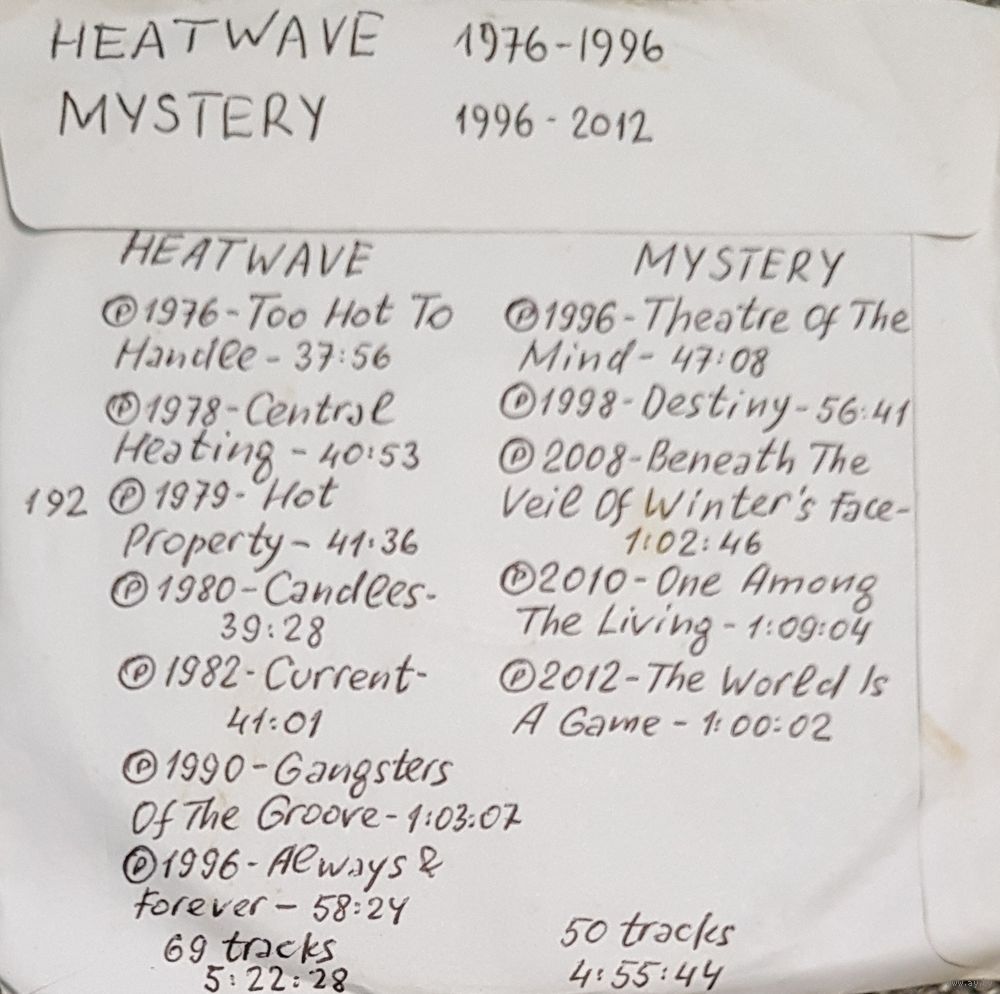 HEATWAVE 1976-1996
MYSTERY 1996-2012
HEATWAVE
Ⓟ1976-Too Hot To
Handle - 37:56
Ⓟ1978-Central
Heating - 40:53
192 Ⓟ1979-Hot
Property - 41:36
Ⓟ1980-Candles-
39:28
Ⓟ1982-Current-
41:01
Ⓟ1990-Gangsters
Of The Groove-1:03:07
Ⓟ1996-Always &
Forever - 58:24
69 tracks
5:22:28
MYSTERY
Ⓟ1996-Theatre Of The
Mind- 47:08
Ⓟ1998-Destiny-56:41
Ⓟ2008-Beneath The
Veil Of Winter's Face-
1:02:46
Ⓟ2010-One Among
The Living-1:09:04
Ⓟ2012-The World Is
A Game - 1:00:02
50 tracks
4:55:44